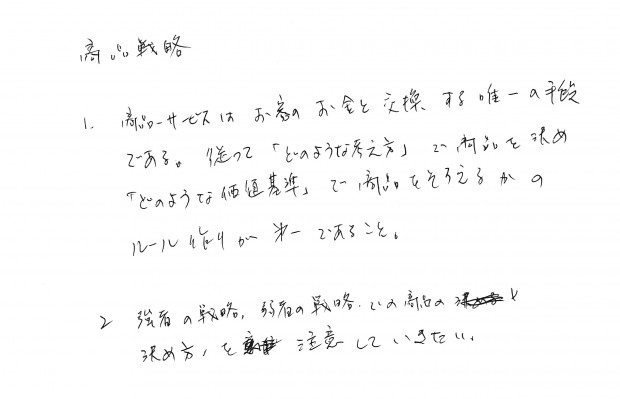 商品戦略
1. 商品・サービスは お客の お金と 交換 する 唯一の手段
である。従って 「どのような考え方」で 商品を決め
「どのような価値基準」で 商品をそろえるかの
ルール作りが 第一であること。
2 強者の戦略、弱者の戦略での商品の
決め方、を 注意していきたい。